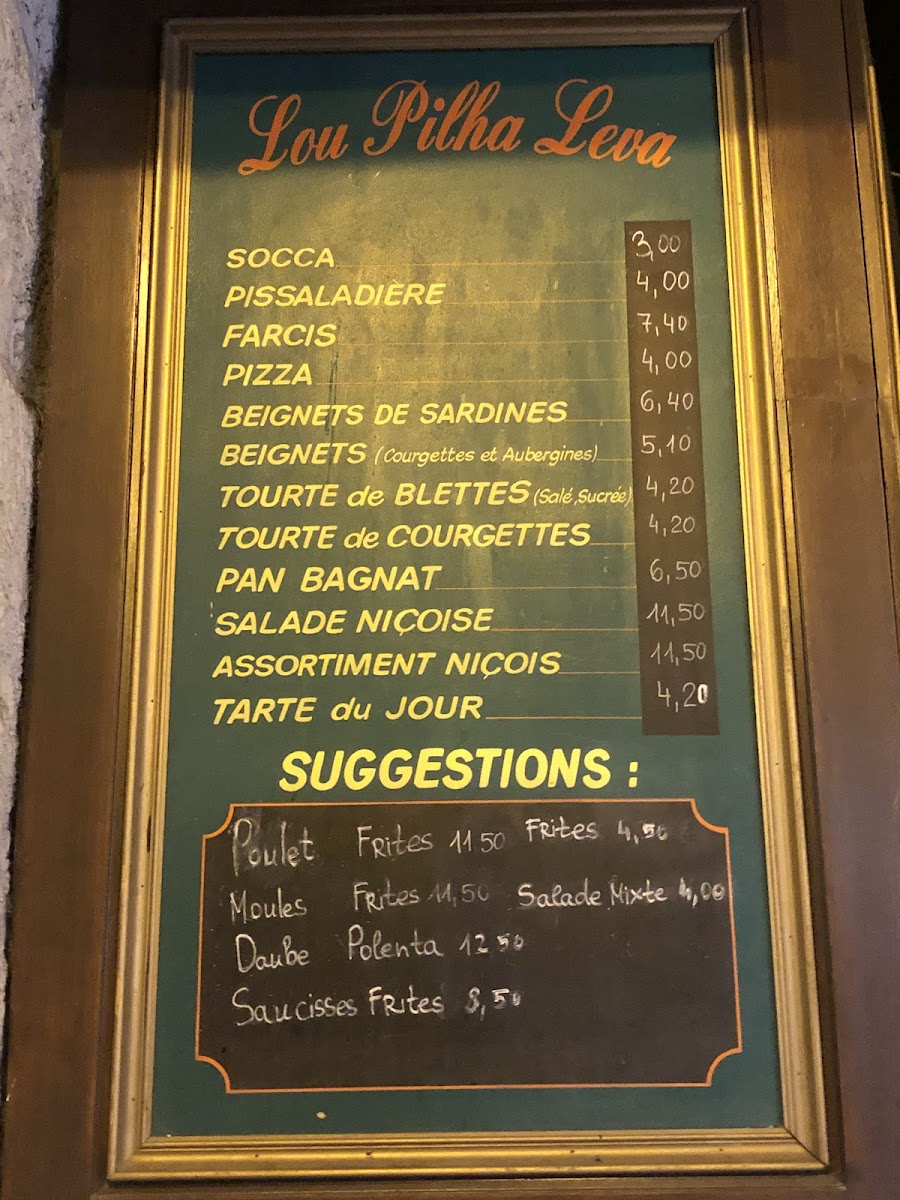 Lou Pilha Leva
SOCCA 3,00
PISSALADIÈRE 4,00
FARCIS 7,40
PIZZA 4,00
BEIGNETS DE SARDINES 6,40
BEIGNETS (Courgettes et Aubergines) 5,10
TOURTE de BLETTES (Salé,Sucrée) 4,20
TOURTE de COURGETTES 4,20
PAN BAGNAT 6,50
SALADE NIÇOISE 11,50
ASSORTIMENT NIÇOIS 11,50
TARTE du JOUR 4,20
SUGGESTIONS :
Poulet Frites 11 50 Frites 4,50
Moules Frites 11,50 Salade Mixte 4,00
Daube Polenta 12 50
Saucisses Frites 8,50